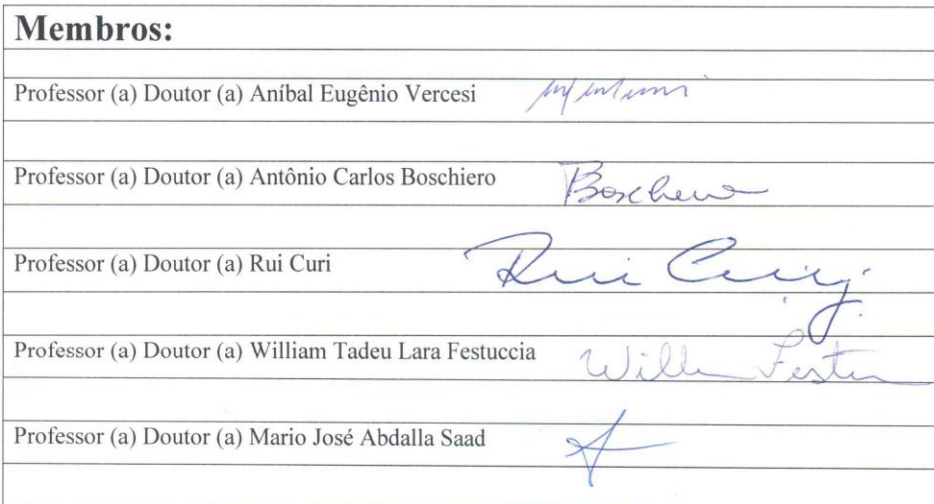 Membros:
Professor (a) Doutor (a) Aníbal Eugênio Vercesi
Professor (a) Doutor (a) Antônio Carlos Boschiero
Professor (a) Doutor (a) Rui Curi Rui Curi
Professor (a) Doutor (a) William Tadeu Lara Festuccia
Professor (a) Doutor (a) Mario José Abdalla Saad